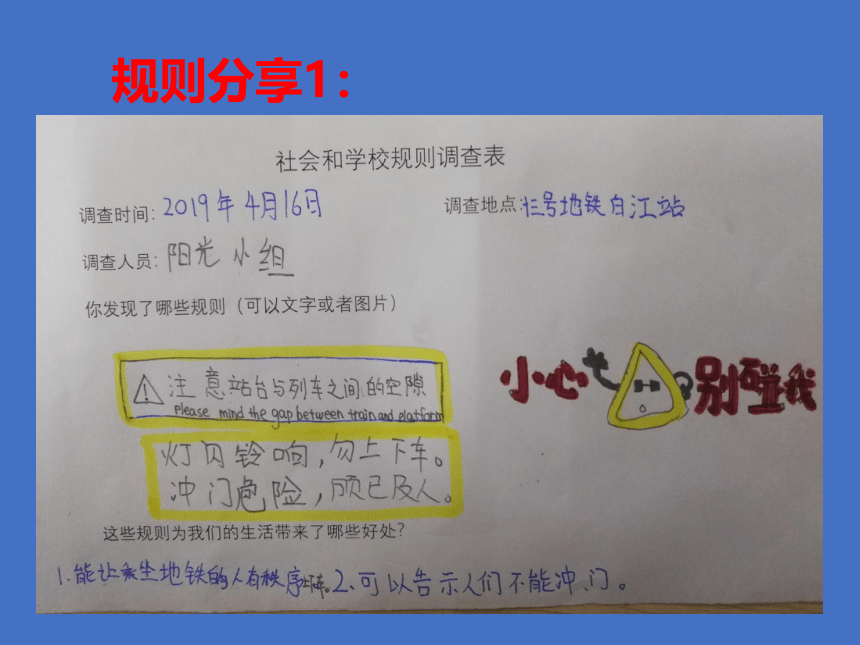 规则分享1：
社会和学校规则调查表
调查时间：2019年4月16日
调查地点：号地铁白江站
调查人员：阳光小组
你发现了哪些规则（可以文字或者图片）
注意站台与列车之间的空隙
Please mind the gap between train and platform
灯闪铃响，勿上下车。
冲门危险，顾已及人。
小心 别碰我
这些规则为我们的生活带来了哪些好处？
1.能让乘坐地铁的人有秩序上下车。2、可以告示人们不能冲门。